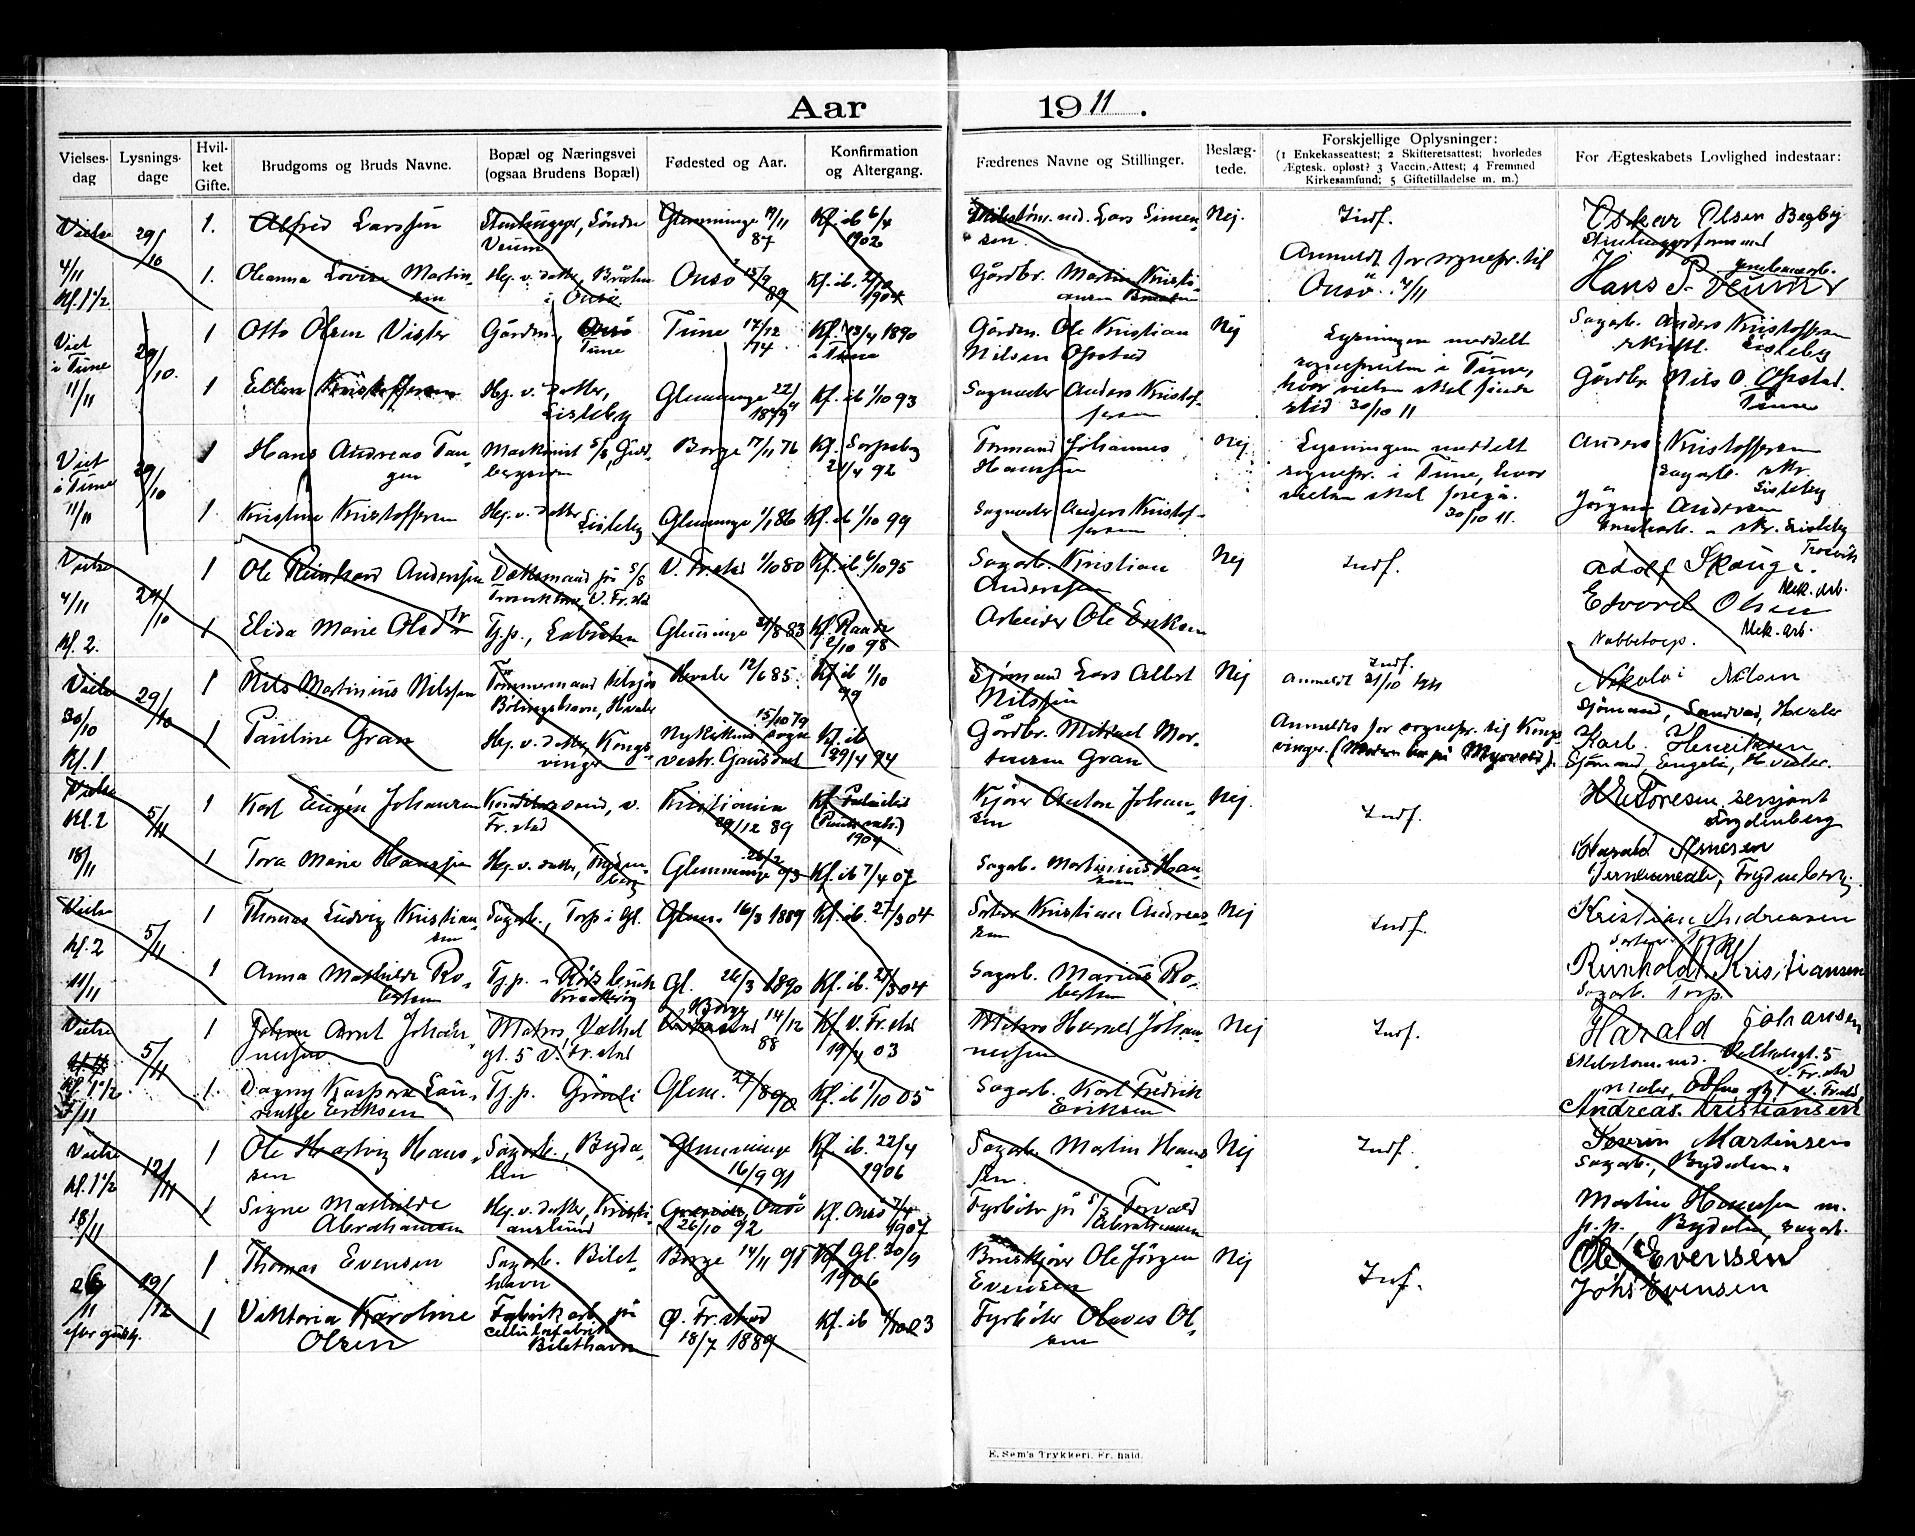 Aar 1911.
Vielses-dag
Lysnings-dage
Hvil-ket Gifte.
Brudgoms og Bruds Navne.
Bopæl og Næringsvei (ogsaa Brudens Bopæl)
Fødested og Aar.
Konfirmation og Altergang.
Fædrenes Navne og Stillinger.
Beslæg-tede.
Forskjellige Oplysninger:
(1 Enkekasseattest; 2 Skifteretsattest; hvorledes
Ægtesk. opløst? 3 Vaccin.-Attest; 4 Fremmed
Kirkesamfund; 5 Giftetilladelse m. m.)
For Ægteskabets Lovlighed indestaar:
Vielse 29/10 1. Alfred Larssen Stenhugger, Söndre Veum Glemminge 87 Kf. ib 6/4 1902 Lars Simensen. Nej. Indf. Oskar Olsen Begby
4/11 Kl. 1½ 1. Oleanna Lovise Martinsen Hj. v. datter, i Onsö Onsö 15/9 89 Kf. ib. 2/10 1904 Gårdbr. Martin Kristiansen Anmeldt for sognepr. til Onsö 4/11 Hans P. Veum
Viet i Tune 29/10. 1 Otto Olsen Vister Gårdm., Tune Tune 17/12 74 Kf. 13/4 1890 i Tune Gårdm. Ole Kristian Nilsen Opstad Nej Lysningen meddelt sognepresten i Tune, hvor vielsen skal finde sted 30/10 11 Sagarb. Anders Kristoffersen Lisleby
11/11 1 Ellen Kristoffersen Hj. v. datter, Lisleby Glemminge 22/ 1879 Kf. ib 1/10 93 Sagmester Anders Kristoffersen Gårdbr. Nils O. Opstad. Tune
Viet i Tune 29/10 1 Hans Andreas Tangen Maskinist Borge 17/11 76 Kf. Sarpsborg 24/4 92 Formand Johannes Hanssen Nej Lysningen meddelt sognepr. i Tune, hvor vielsen skal foregå. 30/10 11. Anders Kristoffersen sagarb. Lisleby
11/11 1. Kristine Kristoffersen Hj. v. datter Lisleby Glemminge 1/1 86 Kf. ib 1/10 99 Sagmester Anders Kristoffersen Jörgen Andersen Lisleby
Vielse 29/10 1 Ole Reinhard Anderssen Dæksmand på S/S V. Fr.stad 1/10 80 Kf. ib 6/10 95 Sagarb. Kristian Anderssen Nej Indf. Adolf Skauge. Trosvik Mek. Arb.
4/11 Kl. 2. 1 Elida Marie Olsdtr Tj. p., Glemminge 29/8 83 Kf. Raade 2/10 98 Arbeider Ole Eriksen Edvard Olsen Mek. arb. Nabbetorp.
Vielse 29/10 1 Nils Martinius Nilssen Tömmermand Bölingshavn, Hvaler Hvaler 12/6 85. Kf. ib 1/10 99 Sjömand Lars Albert Nilssen Nej Indf. Anmeldt 31/10 1911 Nikolai Nilsen Sjömand, Sandvad, Hvaler
30/10 Kl. 1 1 Pauline Gran Hj. v. datter, Kongsvinger Nykirkens sogn vestr. Gausdal 15/10 79 Kf. ib 29/4 94 Gårdbr. Mikael Mortensen Gran Anmeldes for sognepr. til Kongsvinger. Karl Henriksen Sjömand, Hvaler.
Vielse Kl. 2 5/11 1 Karl Eugén Johansen v. Fr.stad Kristiania 29/12 89 1904 Kjörer Anton Johansen Nej. Indf. H. E. Toresen sersjant Frydenberg
18/11 1 Tora Marie Hanssen Hj. v. datter, Frydenberg Glemminge 26/2 93 Kf. ib 7/4 07 Sagarb. Martinius Hansen Harald Arnesen Frydenberg.
Vielse Kl. 2 5/11 1 Thomas Ludvig Kristiansen Sagarb., Torp i Gl. Glem. 16/3 1889 Kf. ib. 27/3 04 Kristian Andreassen Nej Indf. Kristian Andreasen Torp
11/11 1 Anna Mathilde Robertsen Tj. p. Gl. 26/3 1890 Kf. ib. 27/3 04 Sagarb. Marius Robertsen Reinholdt Kristiansen Sagarb. Torp.
Vielse 5/11 1 Johan Arnt Johannessen Matros, Valhalgt. 5 V. Fr.stad Borge 14/12 88 Kf. V. Fr.stad 19/4 03 Johannessen Nej Indf. Harald Johansen Valhalsgt. 5 v. Fr.stad
Kl. 1½ 1. Dagny Kaspara Laurentze Eriksen Tj. p. Grönli Glem. 27/8 90 Kf. ib 1/10 05 Sagarb. Karl Fredrik Eriksen Andreas Kristiansen
Vielse Kl. 1½ 12/11 1 Ole Hartvig Hanssen Sagarb., Bydalen Glemminge 16/9 91 Kf. ib. 22/4 1906 Sagarb. Martin Hanssen. Nej Indf. Severin Martinsen Sagarb., Bydalen.
18/11 1 Signe Mathilde Abrahamsen Hj. v. datter, Kristianslund Onsö 26/10 92 Kf. Onsö 7/4 1907 Fyrböter på S/S Torvald Abrahamsen Martin Hanssen m. p. p., Bydalen, sagarb.
26/11 19/12 1 Thomas Evensen Sagarb. Bilethavn Borge 14/11 91 Kf. Gl. 30/9 1906 Ole Jörgen Evensen Nej Inf. Ole Evensen
1 Viktoria Karoline Olsen Fabrikarb. på Cellulosefabrik Bilethavn Ø. Fr.stad 18/7 1889 Kf. ib Fyrböter Olaves Olsen Johs Evensen
E. Sem's Trykkeri, Fr.hald.